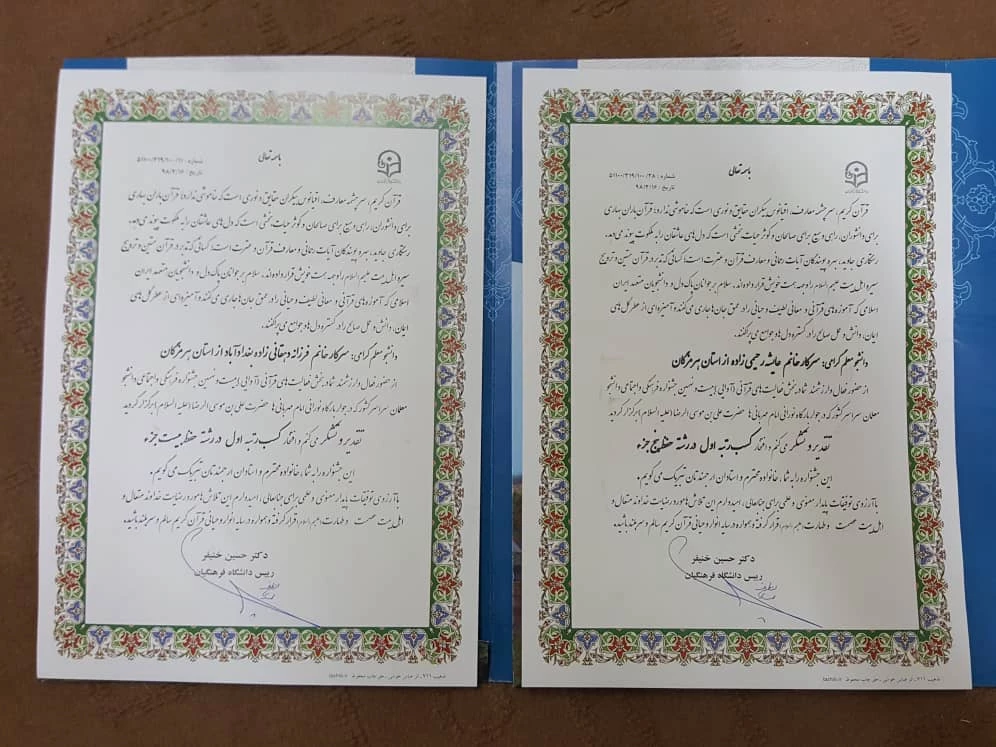 باسمه تعالی
شماره: ۵۱۱۰۰/۳۱۹/۱۰۰/۲۸
تاریخ: ۹۸/۲/۱۶
قرآن کریم، سرچشمه معارف، اقیانوس بیکران حقایق و نوری است که خاموشی ندارد؛ قرآن باران بهاری
برای دانشوران، راهی وسیع برای صالحان و کوثر حیات بخشی است که دل های عاشقان را به ملکوت پیوند می دهد.
رستگاری جاوید، بهره پویندگان آیات رحمانی و معارف قرآن و عترت است؛ کسانی که تدبر در قرآن مبین و ترویج
سیره اهل بیت علیهم السلام را وجهه همت خویش قرار داده اند. سلام بر جوانان پاک دل و دانشجویان متعهد ایران
اسلامی که آموزه های قرآنی و معانی لطیف وحیانی را در عمق جان ها جاری می کنند و آمیزه ای از عطر گل های
ایمان، دانش و عمل صالح را در گستره دل ها و جوامع می پراکنند.
دانشجو معلم گرامی؛ سرکار خانم عایشه رحیمی زاده از استان هرمزگان
از حضور فعال و ارزشمند شما در بخش فعالیت های قرآنی (آوایی) بیست و نهمین جشنواره فرهنگی و اجتماعی دانشجو
معلمان سراسر کشور که در جوار بارگاه نورانی امام مهربانی ها حضرت علی بن موسی الرضا (علیه السلام) برگزار گردید
تقدیر و تشکر می کنم و افتخار کسب رتبه اول در رشته حفظ پنج جزء
این جشنواره را به شما، خانواده محترم و استادان ارجمندتان تبریک می گویم.
با آرزوی توفیقات پایدار معنوی و علمی برای جنابعالی، امیدوارم این تلاش ها مورد رضایت خداوند متعال و
اهل بیت عصمت و طهارت (علیهم السلام) قرار گرفته و همواره در سایه انوار وحیانی قرآن کریم سالم و سربلند باشید.
دکتر حسین خنیفر
رییس دانشگاه فرهنگیان
تذهیب ۷۱۱، اثر عباس خوشی، حق چاپ محفوظ
باسمه تعالی
شماره: ۵۱۱۰۰/۳۱۹/۱۰۰/۱۱
تاریخ: ۹۸/۲/۱۶
قرآن کریم، سرچشمه معارف، اقیانوس بیکران حقایق و نوری است که خاموشی ندارد؛ قرآن باران بهاری
برای دانشوران، راهی وسیع برای صالحان و کوثر حیات بخشی است که دل های عاشقان را به ملکوت پیوند می دهد.
رستگاری جاوید، بهره پویندگان آیات رحمانی و معارف قرآن و عترت است؛ کسانی که تدبر در قرآن مبین و ترویج
سیره اهل بیت علیهم السلام را وجهه همت خویش قرار داده اند. سلام بر جوانان پاک دل و دانشجویان متعهد ایران
اسلامی که آموزه های قرآنی و معانی لطیف وحیانی را در عمق جان ها جاری می کنند و آمیزه ای از عطر گل های
ایمان، دانش و عمل صالح را در گستره دل ها و جوامع می پراکنند.
دانشجو معلم گرامی؛ سرکار خانم فرزانه دهقانی زاده بغدادآباد از استان هرمزگان
از حضور فعال و ارزشمند شما در بخش فعالیت های قرآنی (آوایی) بیست و نهمین جشنواره فرهنگی و اجتماعی دانشجو
معلمان سراسر کشور که در جوار بارگاه نورانی امام مهربانی ها حضرت علی بن موسی الرضا (علیه السلام) برگزار گردید
تقدیر و تشکر می کنم و افتخار کسب رتبه اول در رشته حفظ بیست جزء
این جشنواره را به شما، خانواده محترم و استادان ارجمندتان تبریک می گویم.
با آرزوی توفیقات پایدار معنوی و علمی برای جنابعالی، امیدوارم این تلاش ها مورد رضایت خداوند متعال و
اهل بیت عصمت و طهارت (علیهم السلام) قرار گرفته و همواره در سایه انوار وحیانی قرآن کریم سالم و سربلند باشید.
دکتر حسین خنیفر
رییس دانشگاه فرهنگیان
تذهیب ۷۱۱، اثر عباس خوشی، حق چاپ محفوظ